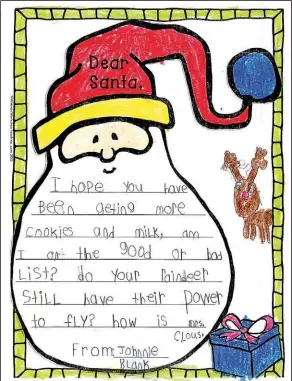 Dear
Santa,
I hope you have
Been geting more
cookies and milk, am
I ant the good or bad
List? do your Raindeer
Still have their power
to fly? how is mrs.
Claus?
From Johnnie
Blank